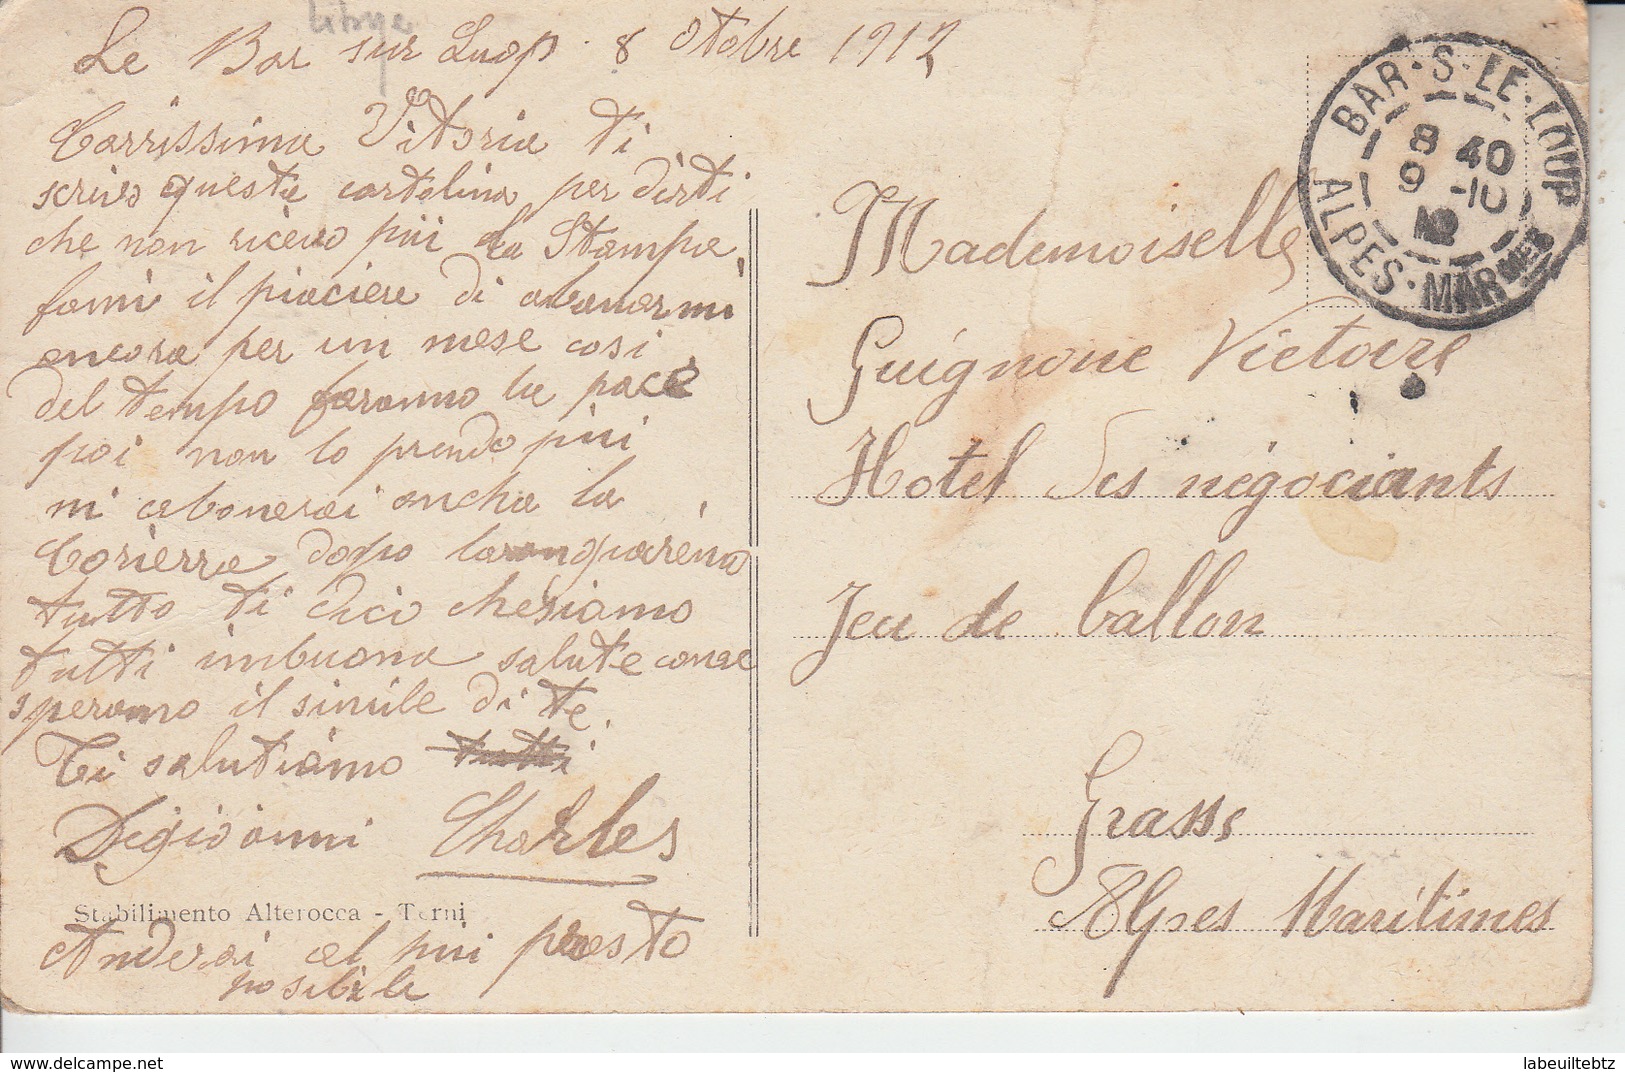 Libye
Le Bar sur Luop 8 Otobre 1912
Carrissima Vitoria ti
scrivo queste cartolina per dirti
che non ricevo piü la Stampa,
fami il piaciere di abonarmi
ancora per un mese cosi
del tempo faranno la pace
poi non lo prendo piü
mi abonerai ancha la
Corierra dopo
tutto ti dico che siamo
tutti imbuona salute come
speramo il simile di te.
Ti salutiamo tutti
Degiovanni Charles
Stabilimento Alterocca - Terni
Anderai al piu presto
posibile
Mademoiselle
Guignone Victoire
Hotel des négociants
Jeu de ballon
Grasse
Alpes Maritimes
BAR-S-LE-LOUP
8 40
9 -10
12
ALPES-MARMES
labeuiltebtz